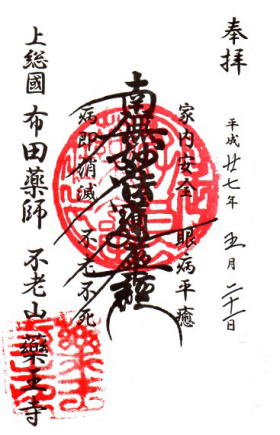 奉拝
平成廿七年 五月二十一日
家内安全 眼病平癒
南無妙法蓮華經
病即消滅 不老不死
上総國 布田薬師 不老山 藥王寺